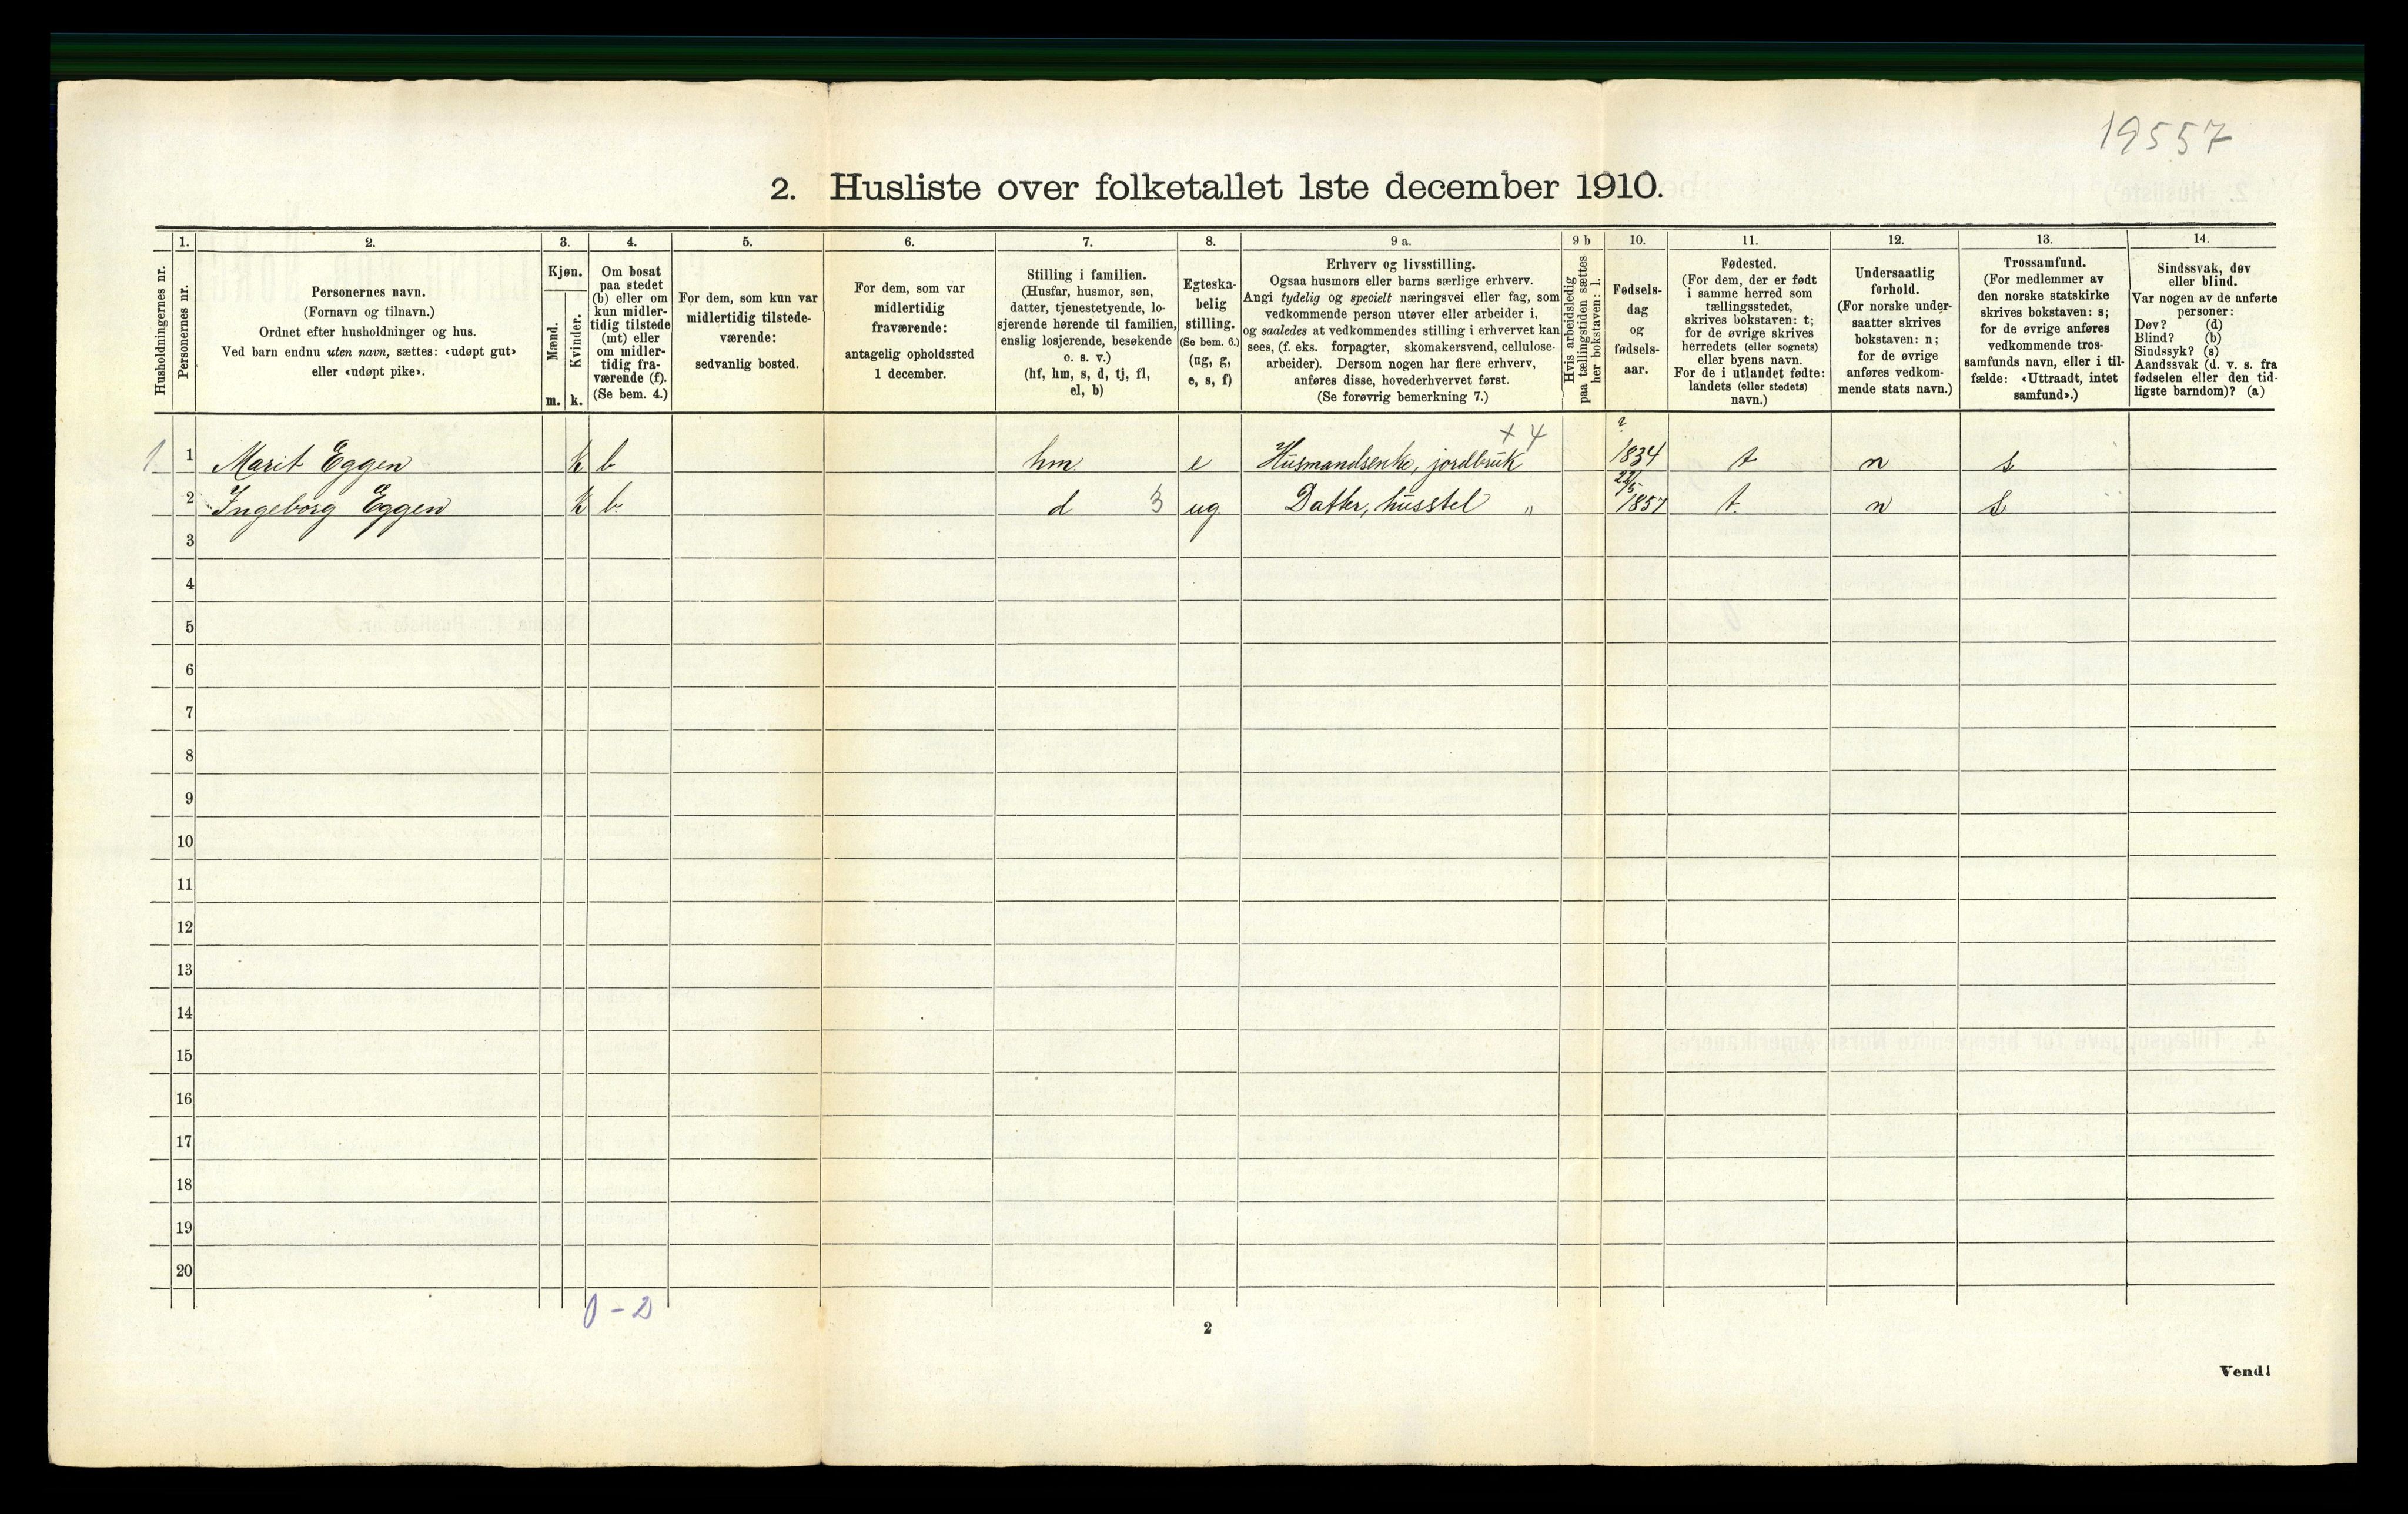 19557
2. Husliste over folketallet 1ste december 1910.
Husholdningernes nr.
1.
Personernes nr.
2.
Personernes navn.
(Fornavn og tilnavn.)
Ordnet efter husholdninger og hus.
Ved barn endnu uten navn, sættes: «udøpt gut»
eller «udøpt pike».
3.
Kjøn.
Mænd.
Kvinder.
m.
k.
4.
Om bosat
paa stedet
(b) eller om
kun midler-
tidig tilstede
(mt) eller
om midler-
tidig fra-
værende (f).
(Se bem. 4.)
5.
For dem, som kun var
midlertidig tilstede-
værende:
sedvanlig bosted.
6.
For dem, som var
midlertidig
fraværende:
antagelig opholdssted
1 december.
7.
Stilling i familien.
(Husfar, husmor, søn,
datter, tjenestetyende, lo-
sjerende hørende til familien,
enslig losjerende, besøkende
o. s. v.)
(hf, hm, s, d, tj, fl,
el, b)
8.
Egteska-
belig
stilling.
(Se bem. 6.)
(ug, g,
e, s, f)
9 a.
Erhverv og livsstilling.
Ogsaa husmors eller barns særlige erhverv.
Angi tydelig og specielt næringsvei eller fag, som
vedkommende person utøver eller arbeider i,
og saaledes at vedkommendes stilling i erhvervet kan
sees, (f. eks. forpagter, skomakersvend, cellulose-
arbeider). Dersom nogen har flere erhverv,
anføres disse, hovederhvervet først.
(Se forøvrig bemerkning 7.)
9 b
Hvis arbeidsledig
paa tællingstiden sættes
her bokstaven: l.
10.
Fødsels-
dag
og
fødsels-
aar.
11.
Fødested.
(For dem, der er født
i samme herred som
tællingsstedet,
skrives bokstaven: t;
for de øvrige skrives
herredets (eller sognets)
eller byens navn.
For de i utlandet fødte:
landets (eller stedets)
navn.)
12.
Undersaatlig
forhold.
(For norske under-
saatter skrives
bokstaven: n;
for de øvrige
anføres vedkom-
mende stats navn.)
13.
Trossamfund.
(For medlemmer av
den norske statskirke
skrives bokstaven: s;
for de øvrige anføres
vedkommende tros-
samfunds navn, eller i til-
fælde: «Uttraadt, intet
samfund».)
14.
Sindssvak, døv
eller blind.
Var nogen av de anførte
personer:
Døv? (d)
Blind? (b)
Sindssyk? (s)
Aandssvak (d. v. s. fra
fødselen eller den tid-
ligste barndom)? (a)
+ 4 ?
1 1 Marit Eggen k b hm e Husmandsenke, jordbruk 1834 t n s
22/5
2 Ingeborg Eggen k b d 3 ug. Datter, husstel „ 1857 t. n s
3
4
5
6
7
8
9
10
11
12
13
14
15
16
17
18
19
20
0 - 2
2
Vend!